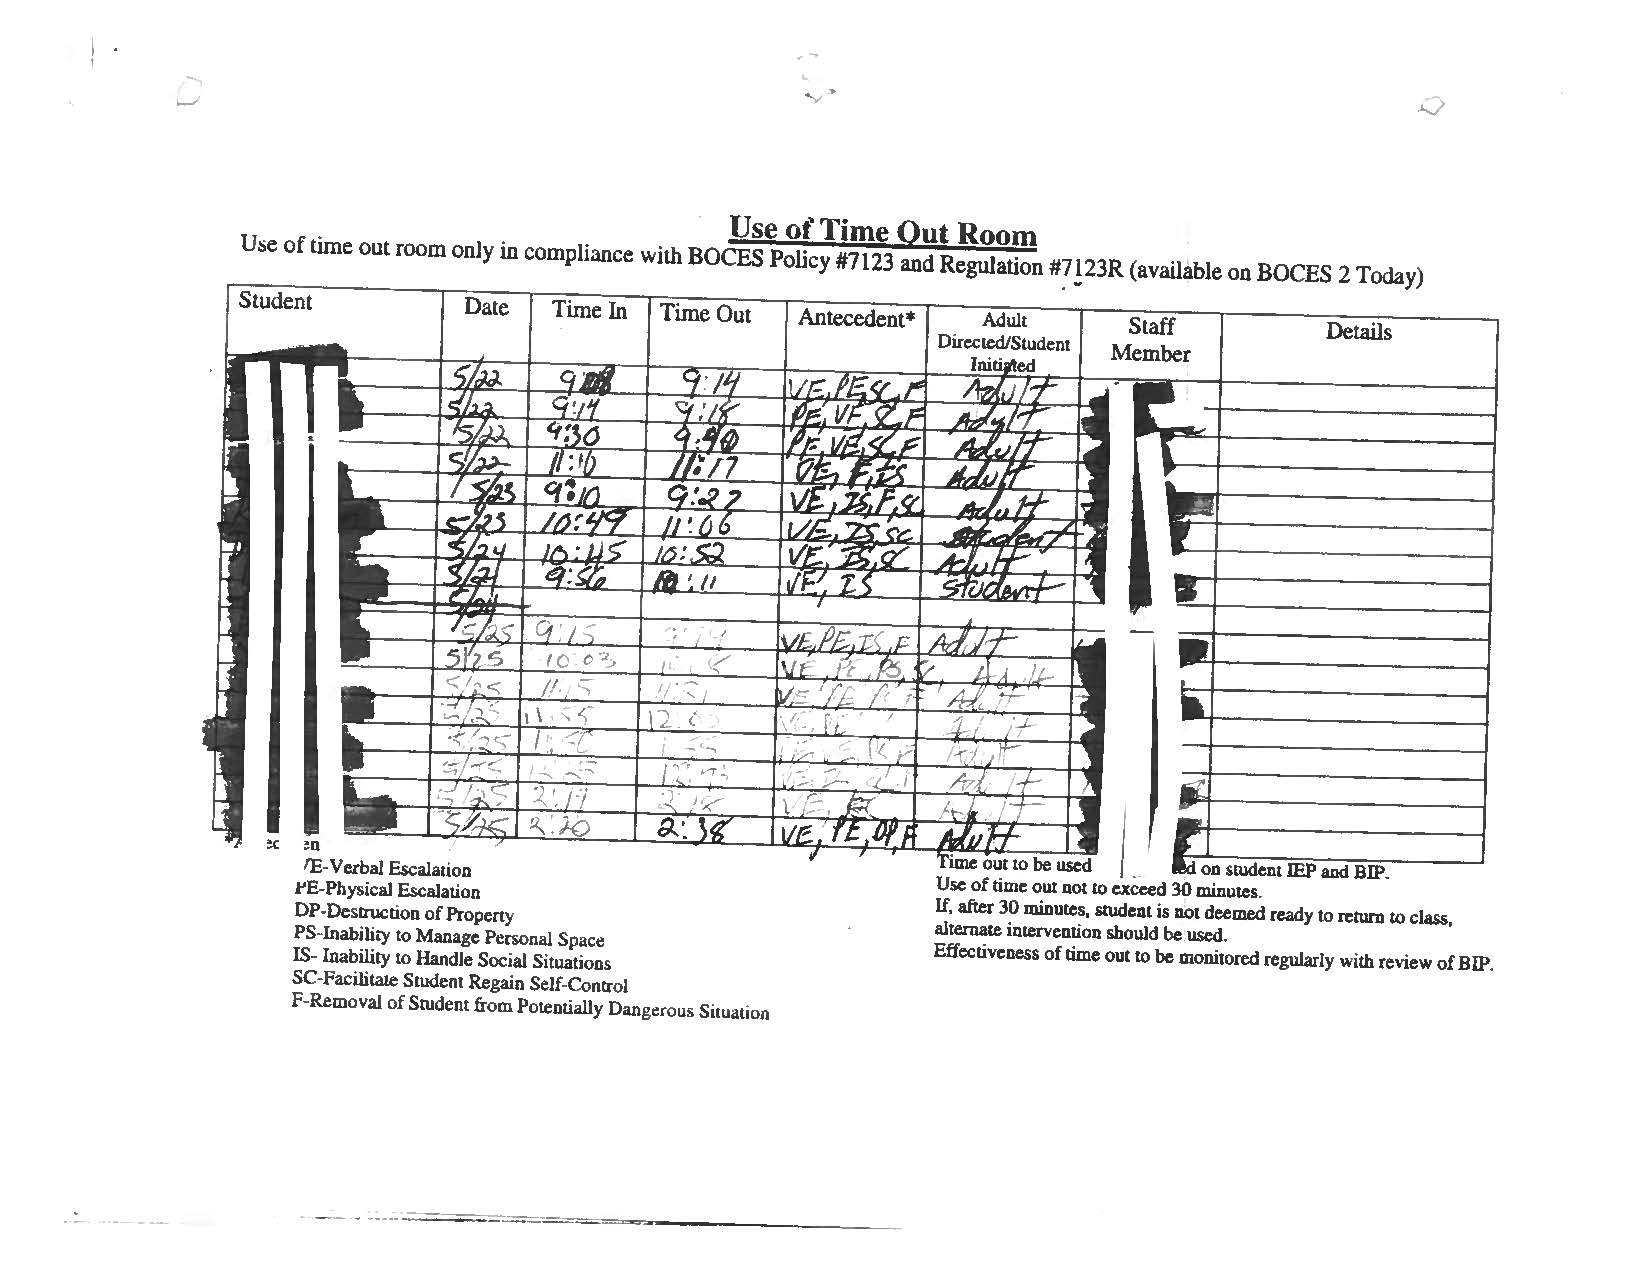 Use of Time Out Room
Use of time out room only in compliance with BOCES Policy #7123 and Regulation #7123R (available on BOCES 2 Today)
Student Date Time In Time Out Antecedent* Adult Directed/Student Initiated Staff Member Details
5/22 9:14 VE, PE, SC, F Adult
5/22 9:14 9:18 PE, VE, SC, F Adult
5/22 9:30 9:40 PE, VE, SC, F Adult
5/22 11:10 11:17 F, IS Adult
5/23 9:10 9:27 VE, IS, F, SC Adult
5/23 10:49 11:06 VE, IS, SC Student
5/24 10:45 10:52 VE, IS, SC Adult
5/24 9:56 10:11 VE, IS Student
5/24
5/25 9:15 VE, PE, IS, F Adult
5/25 10:03 VE, PE, PS, SC, Adult
5/25 11:15 VE PE F Adult
5/25 11:55 12:00 VE, PE Adult
5/25 Adult
5/25 Adult
5/25 2:14 2:18 VE, Adult
5/25 2:20 2:38 VE, PE, DP, F Adult
E-Verbal Escalation
PE-Physical Escalation
DP-Destruction of Property
PS-Inability to Manage Personal Space
IS- Inability to Handle Social Situations
SC-Facilitate Student Regain Self-Control
F-Removal of Student from Potentially Dangerous Situation
Time out to be used on student IEP and BIP.
Use of time out not to exceed 30 minutes.
If, after 30 minutes, student is not deemed ready to return to class,
alternate intervention should be used.
Effectiveness of time out to be monitored regularly with review of BIP.